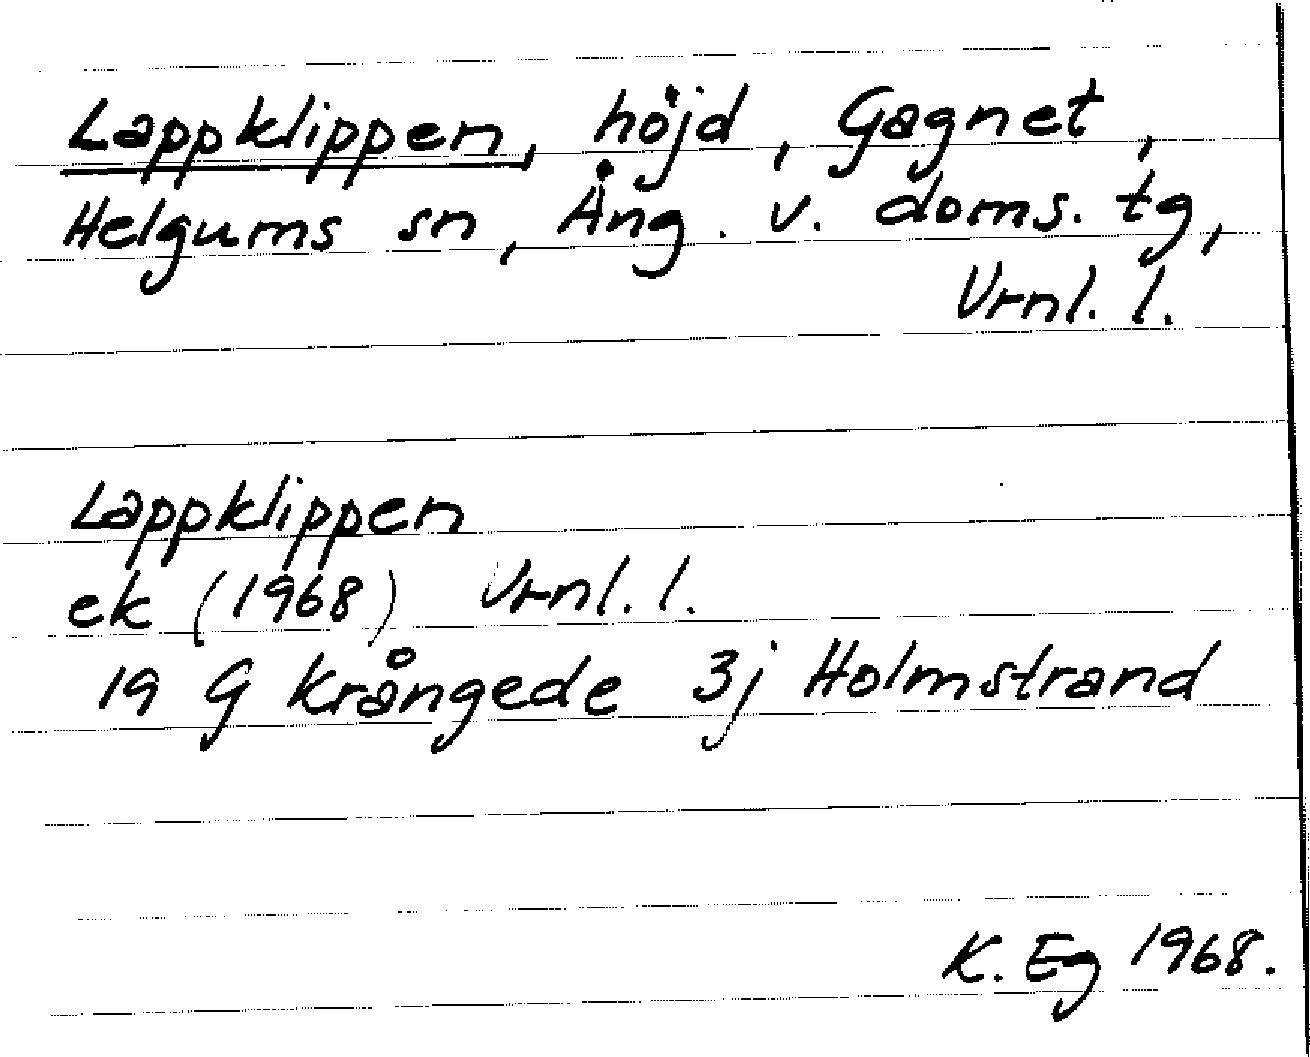 Lappklippen, höjd, Gagnet,
Helgums sn, Ång. v. doms. tg,
Vrnl. l.
Lappklippen
ek (1968) Vrnl. l.
19 G Krångede 3j Holmstrand
K. Eg 1968.